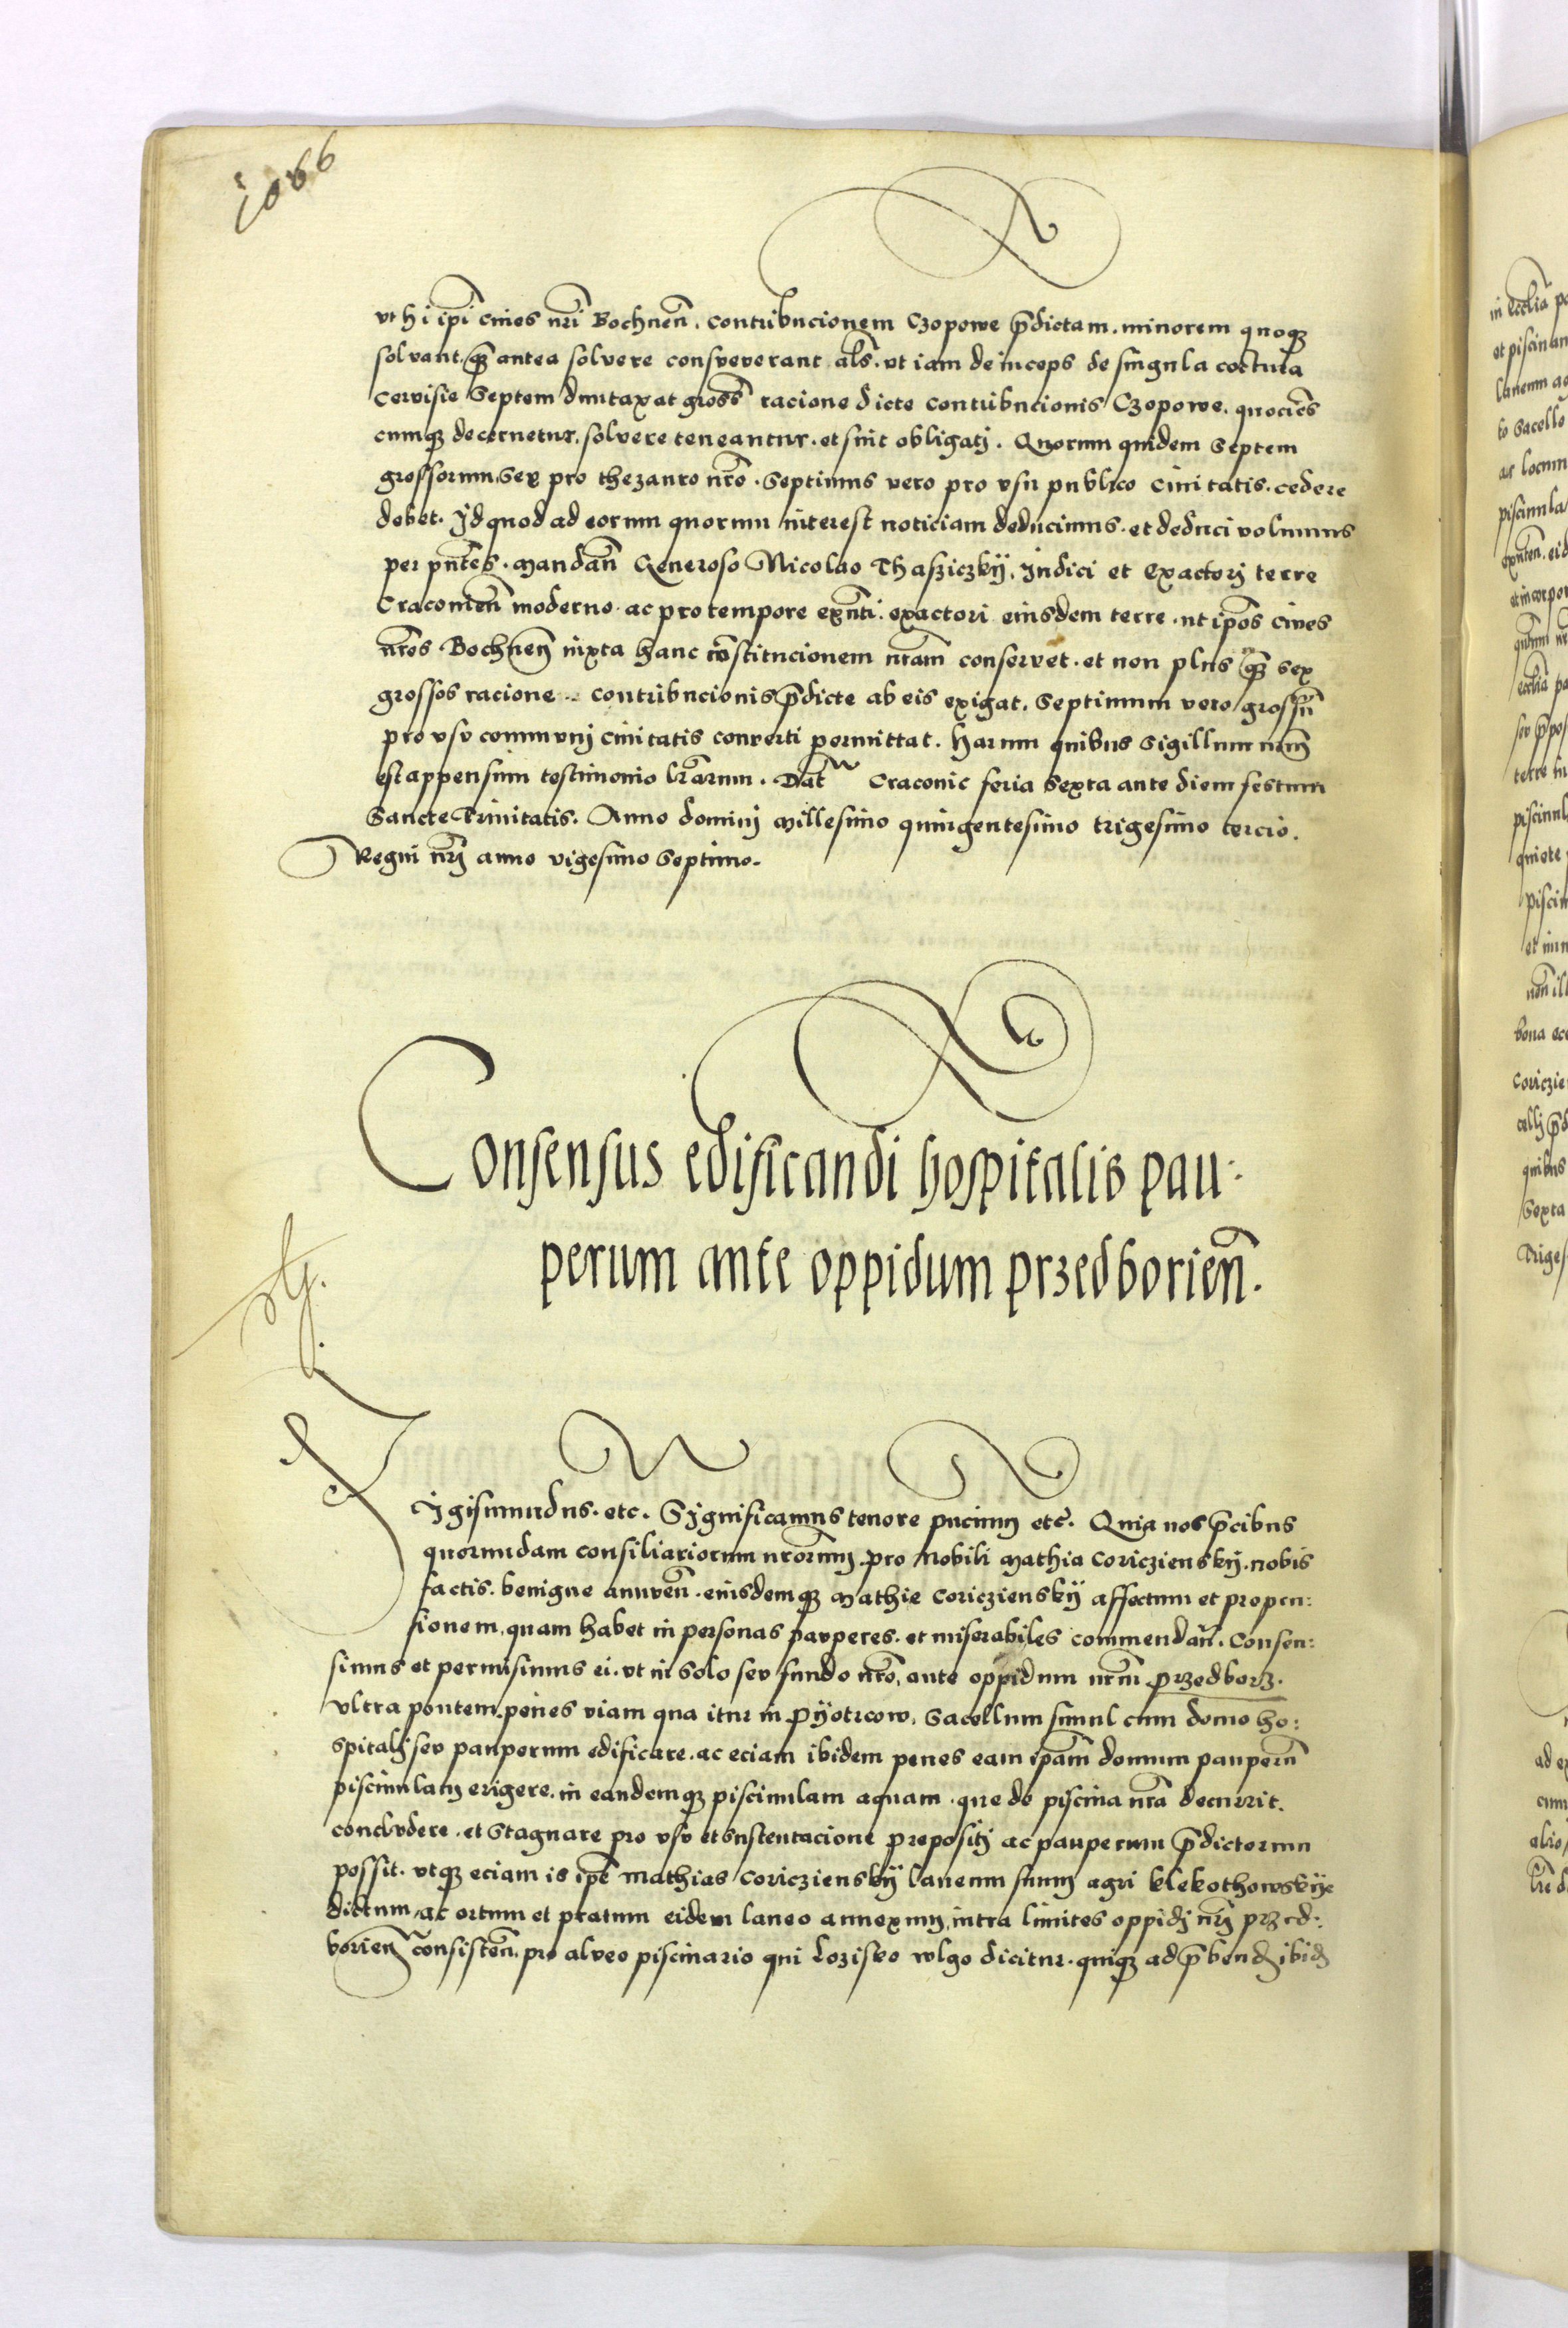 1066
vt hi ip̄i ciues nr̄i Bochnen̄. contribucionem Czopowe p̄dictam. minorem quoqꝫ
solvant. qꝫ̄ antea solvere consveverant al̄s. vt iam deinceps de singula coctura
cervisie Septem dumtaxat gross̄ racione dicte contribucionis Czopowe. quocies̄
cumqꝫ decernetur. solvere teneantur. et sint obligatj. Quorum quidem Septem
grossorum, Sex pro thezauro nr̄o. Septimus vero pro vsu publico Ciuitatis. cedere
debet. Id quod ad eorum quorum interest noticiam deducimus. et deduci volumus
per pn̄tes. mandan̄ Generoso Nicolao Thasziczkÿ, Iudici et Exactorj terre
Cracouien̄ moderno. ac pro tempore exn̄ti. exactori eiusdem terre. ut ip̄os Cives
nr̄os Bochnen̄ iuxta hanc cōstitucionem nr̄am conservet. et non plus qꝫ̄ sex
grossos racione contribucionis p̄dicte ab eis exigat. Septimum vero grossū
pro vsv communj ciuitatis converti permittat. Harum quibus Sigillum nrm̄
est appensum testimonio lr̄arum. Dat̄ Cracouie feria Sexta ante diem festum
Sancte Trinitatis. Anno dominj Millesimo quingentesimo trigesimo tercio.
Regni nr̄j anno vigesimo Septimo.
Consensus edificandi hospitalis pau:
perum ante oppidum przedborien̄.
Sÿgismundus. etc. Sÿgnificamus tenore pn̄cium etc̄. Quia nos p̄cibus
quorundam consiliariorum nr̄orum pro Nobili Mathia Coriczienskÿ. nobis
factis. benigne annven̄. eiusdemqꝫ Mathie Coriczienskÿ affectum et propen:
sionem, quam habet in personas pavperes. et miserabiles commendan̄. Consen:
simus et permisimus ei. vt in solo sev fundo nr̄o, ante oppidum nrm̄ przedborz.
vltra pontem. penes viam qua itur in Pÿotrcow, Sacellum simul cum domo ho:
spitalj sev pauperum edificare. ac eciam ibidem penes eam ip̄am domum pauperū
piscinulam erigere. in eandemqꝫ piscinulam aquam. que de piscina nr̄a decurrit.
conclvdere. et Stagnare pro vsv et sustentacione prepositj ac pauperum p̄dictorum
possit. vtqꝫ eciam is ip̄e Mathias Coriczienskÿ laneum suum agri klekothowskÿe
dictum, ac ortum et pratum eidem laneo annexum, intra limites oppidj nr̄j przed:
borien̄ consisten̄. pro alveo piscinario qui Lozisko wlgo dicitur. quiqꝫ ad p̄bendā ibidē